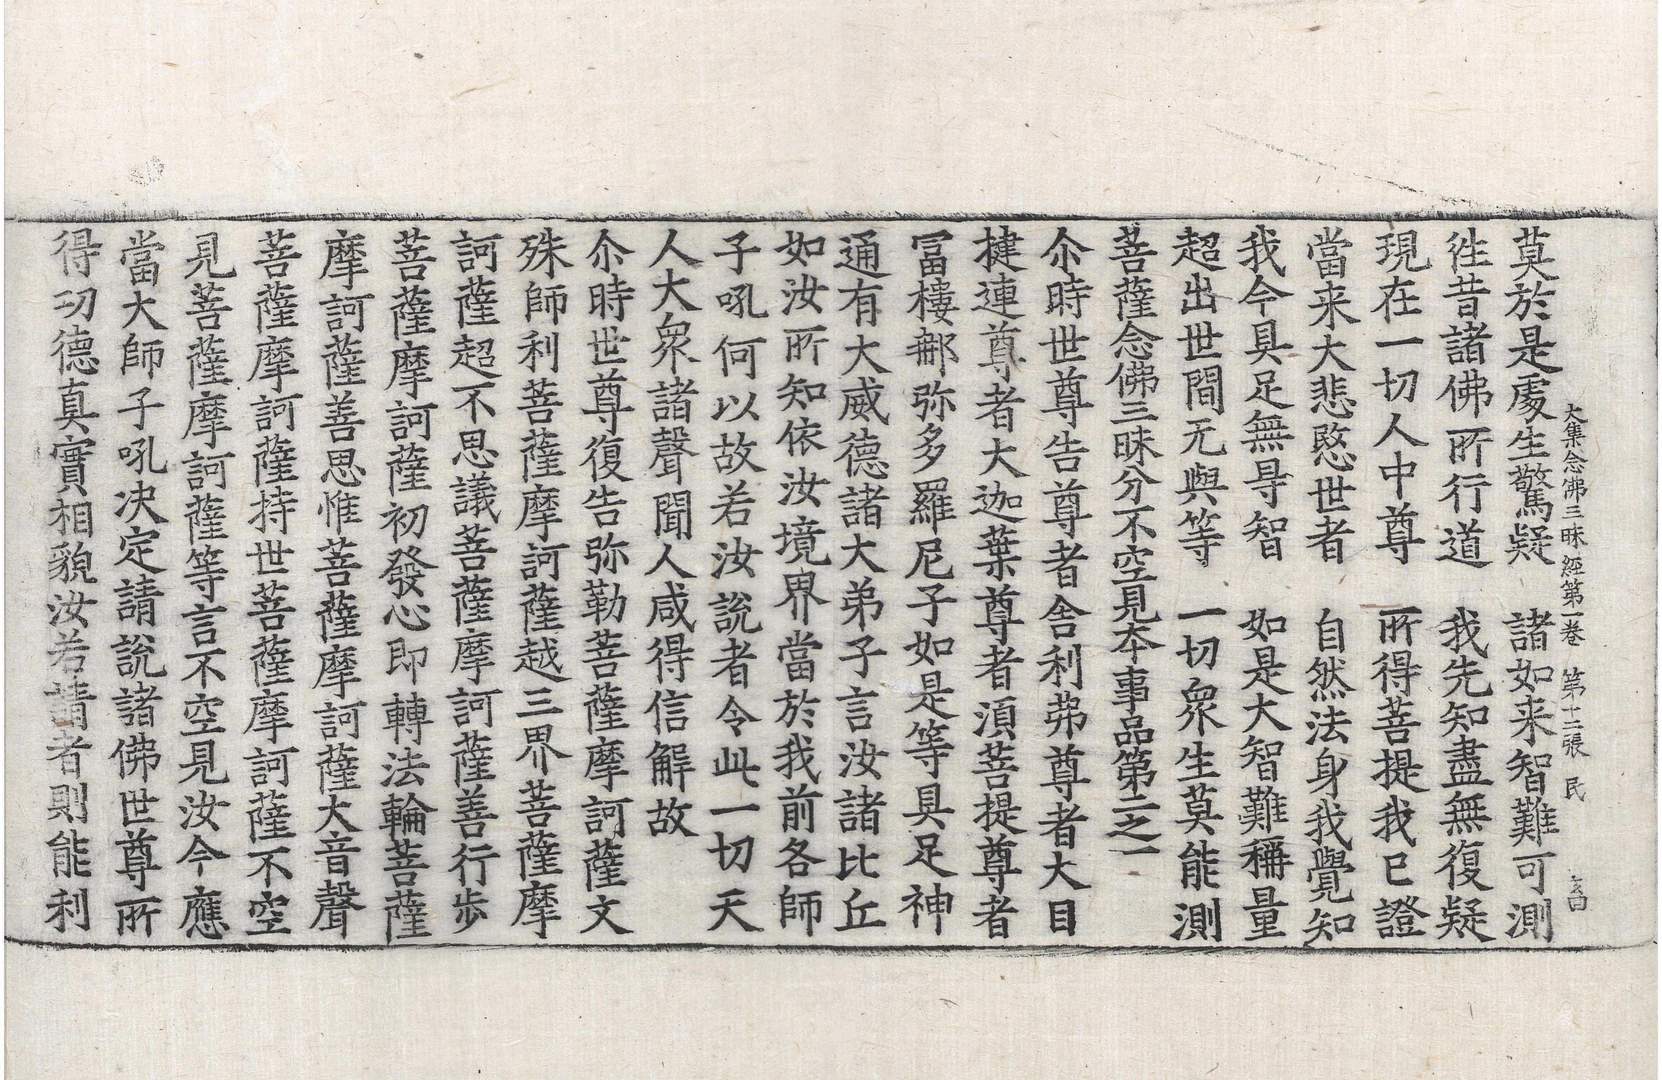 大集念佛三昧經第一卷　第十二張　民
莫於是處生驚疑　諸如来智難可測
徃昔諸佛所行道　我先知盡無復疑
現在一切人中尊　所得菩提我已證
當来大悲愍世者　自然法身我覺知
我今具足無㝵智　如是大智難稱量
超出世間无與等　一切衆生莫能測
菩薩念佛三昧分不空見本事品第二之一
尒時世尊告尊者舍利弗尊者大目
揵連尊者大迦葉尊者湏菩提尊者
冨樓𨚗弥多羅尼子如是等具足神
通有大威德諸大弟子言汝諸比丘
如汝所知依汝境界當於我前各師
子吼何以故若汝說者令此一切天
人大衆諸聲聞人咸得信解故
尒時世尊復告弥勒菩薩摩訶薩文
殊師利菩薩摩訶薩越三界菩薩摩
訶薩超不思議菩薩摩訶薩善行步
菩薩摩訶薩初發心即轉法輪菩薩
摩訶薩善思惟菩薩摩訶薩大音聲
菩薩摩訶薩持世菩薩摩訶薩不空
見菩薩摩訶薩等言不空見汝今應
當大師子吼决定請說諸佛世尊所
得功德真實相貌汝若請者則能利